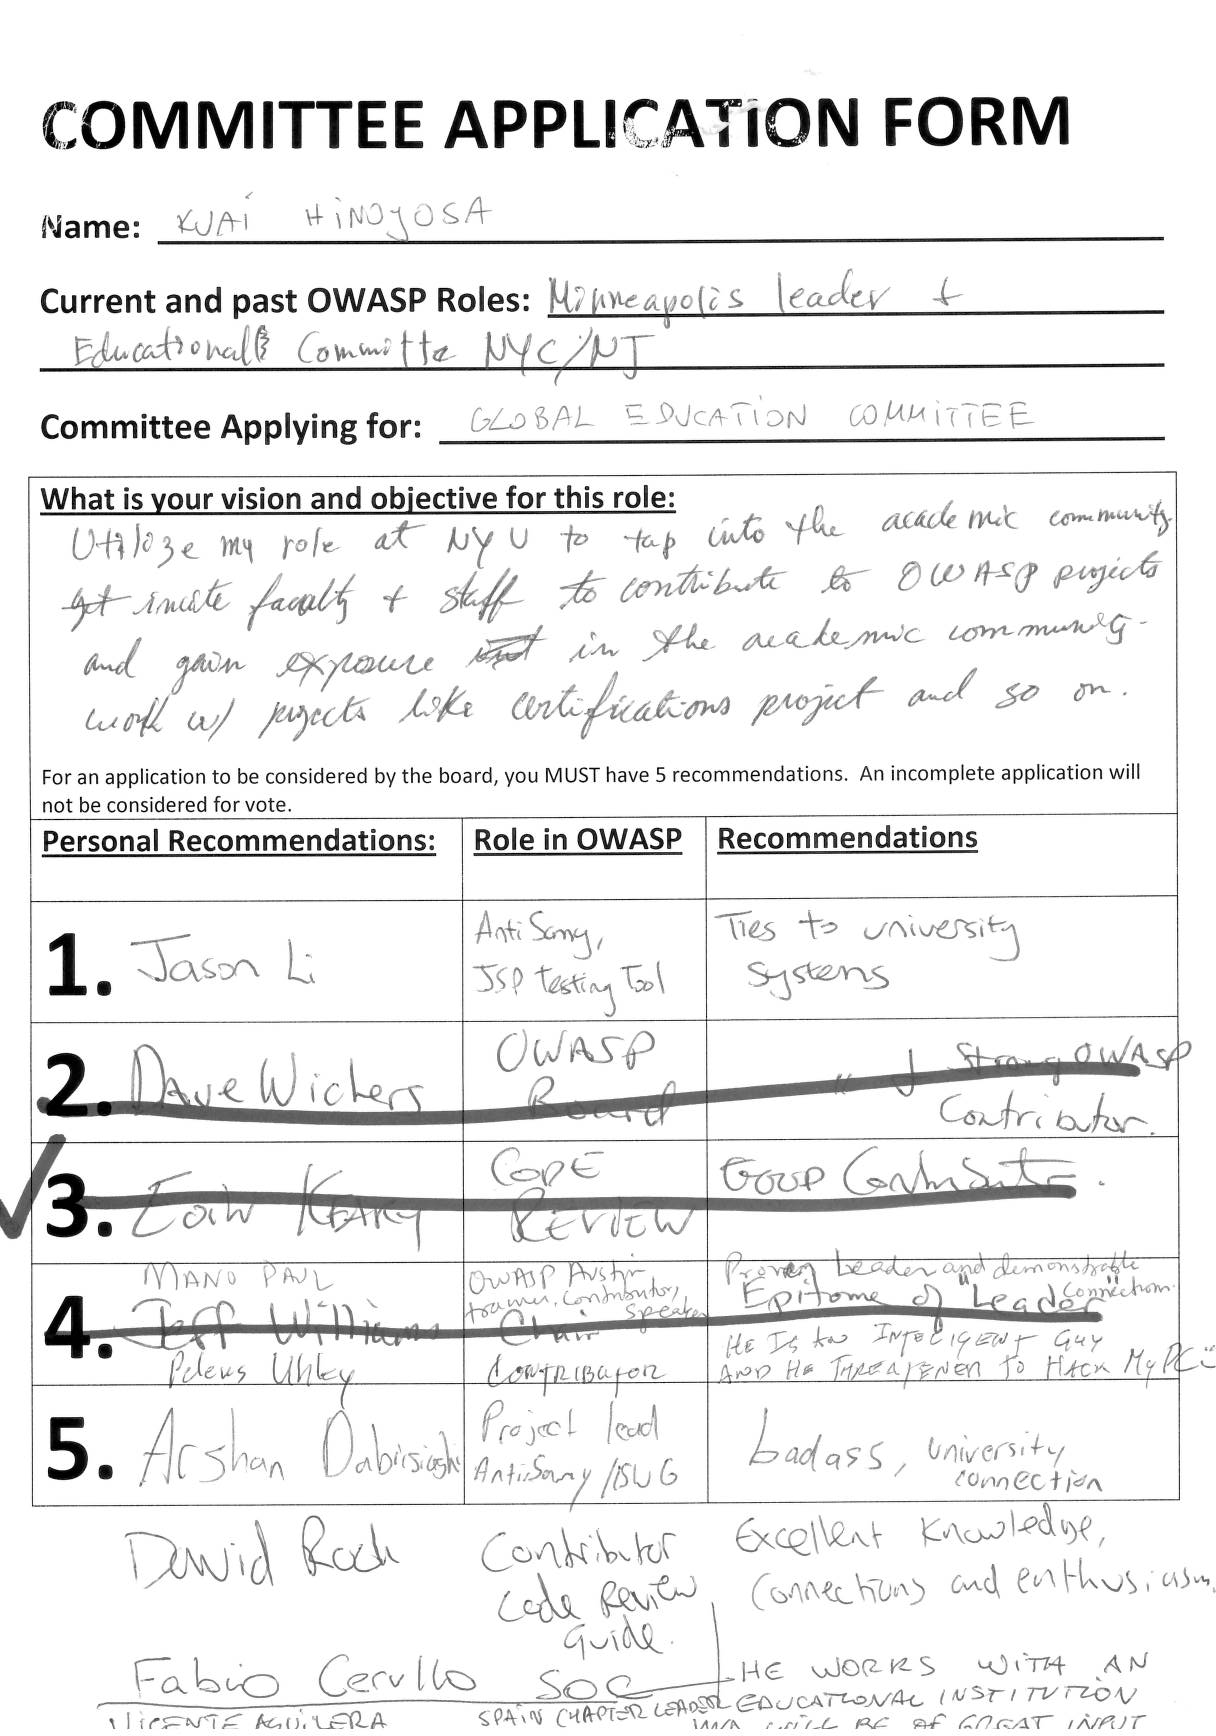 COMMITTEE APPLICATION FORM
Name: KUAI HINOJOSA
Current and past OWASP Roles: Minneapolis leader +
Educational Committe NYC/NJ
Committee Applying for: GLOBAL EDUCATION COMMITTEE
What is your vision and objective for this role:
Utilize my role at NYU to tap into the academic community
get invite faculty + staff to contribute to OWASP projects
and gain exposure in the academic community.
work w/ projects like certifications project and so on.
For an application to be considered by the board, you MUST have 5 recommendations. An incomplete application will
not be considered for vote.
Personal Recommendations: Role in OWASP Recommendations
1. Jason Li AntiSamy, JSP Testing Tool Ties to university
systems
2. Dave Wichers OWASP Board " Strong OWASP
Contributor.
3. Eoin KEARY CODE REVIEW GOOD Contributor.
MANO PAUL OWASP Austin trainer, contributor, speaker Proven Leader and demonstrable connections.
4. Jeff Williams Chair Epitome of "Leader"
Peleus Uhley CONTRIBUTOR HE IS AN INTELIGENT GUY
AND HE THREATENED TO HACK MY PC
5. Arshan Dabirsiaghi Project lead AntiSamy/ISWG badass, university
connection
David Rook Contributor Code Review Guide. Excellent Knowledge,
Connections and enthusiasm.
Fabio Cerullo SOC HE WORKS WITH AN
EDUCATIONAL INSTITUTION
VICENTE AGUILERA SPAIN CHAPTER LEADER
WILL BE OF GREAT INPUT